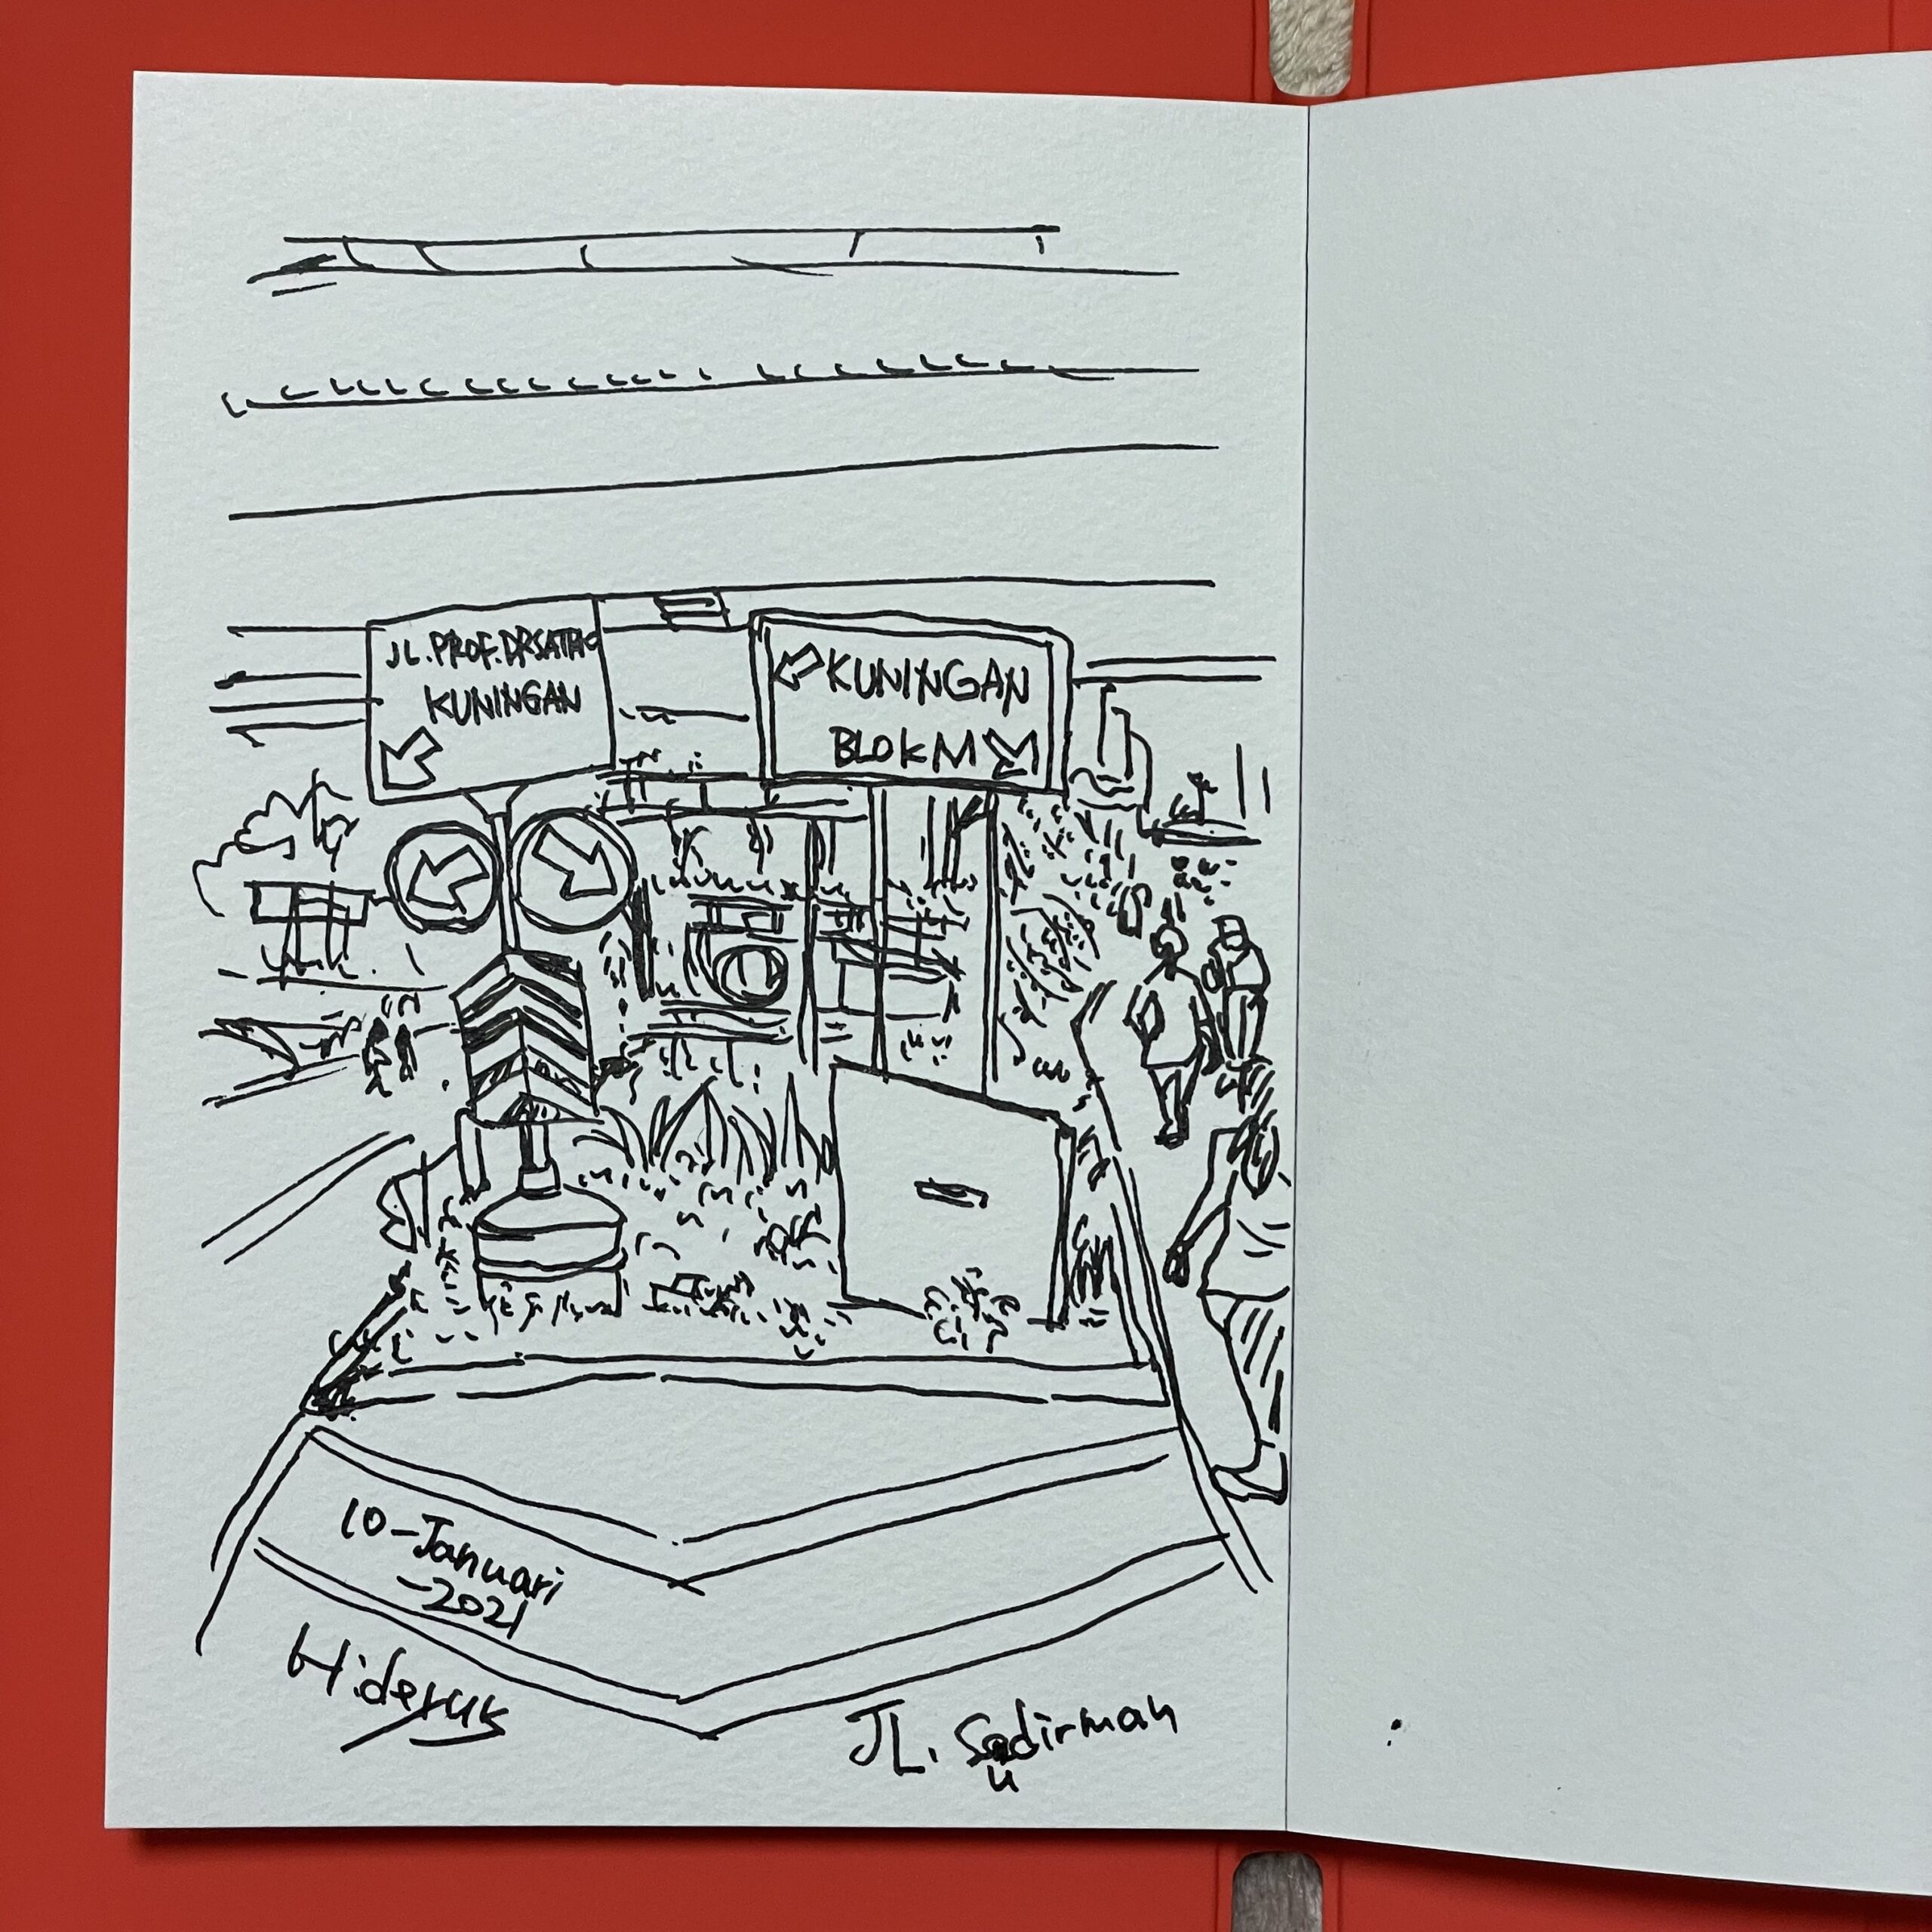 JL. PROF. DR SATRIO
KUNINGAN
KUNINGAN
BLOK M
10-Januari
-2021
JL. Sudirman